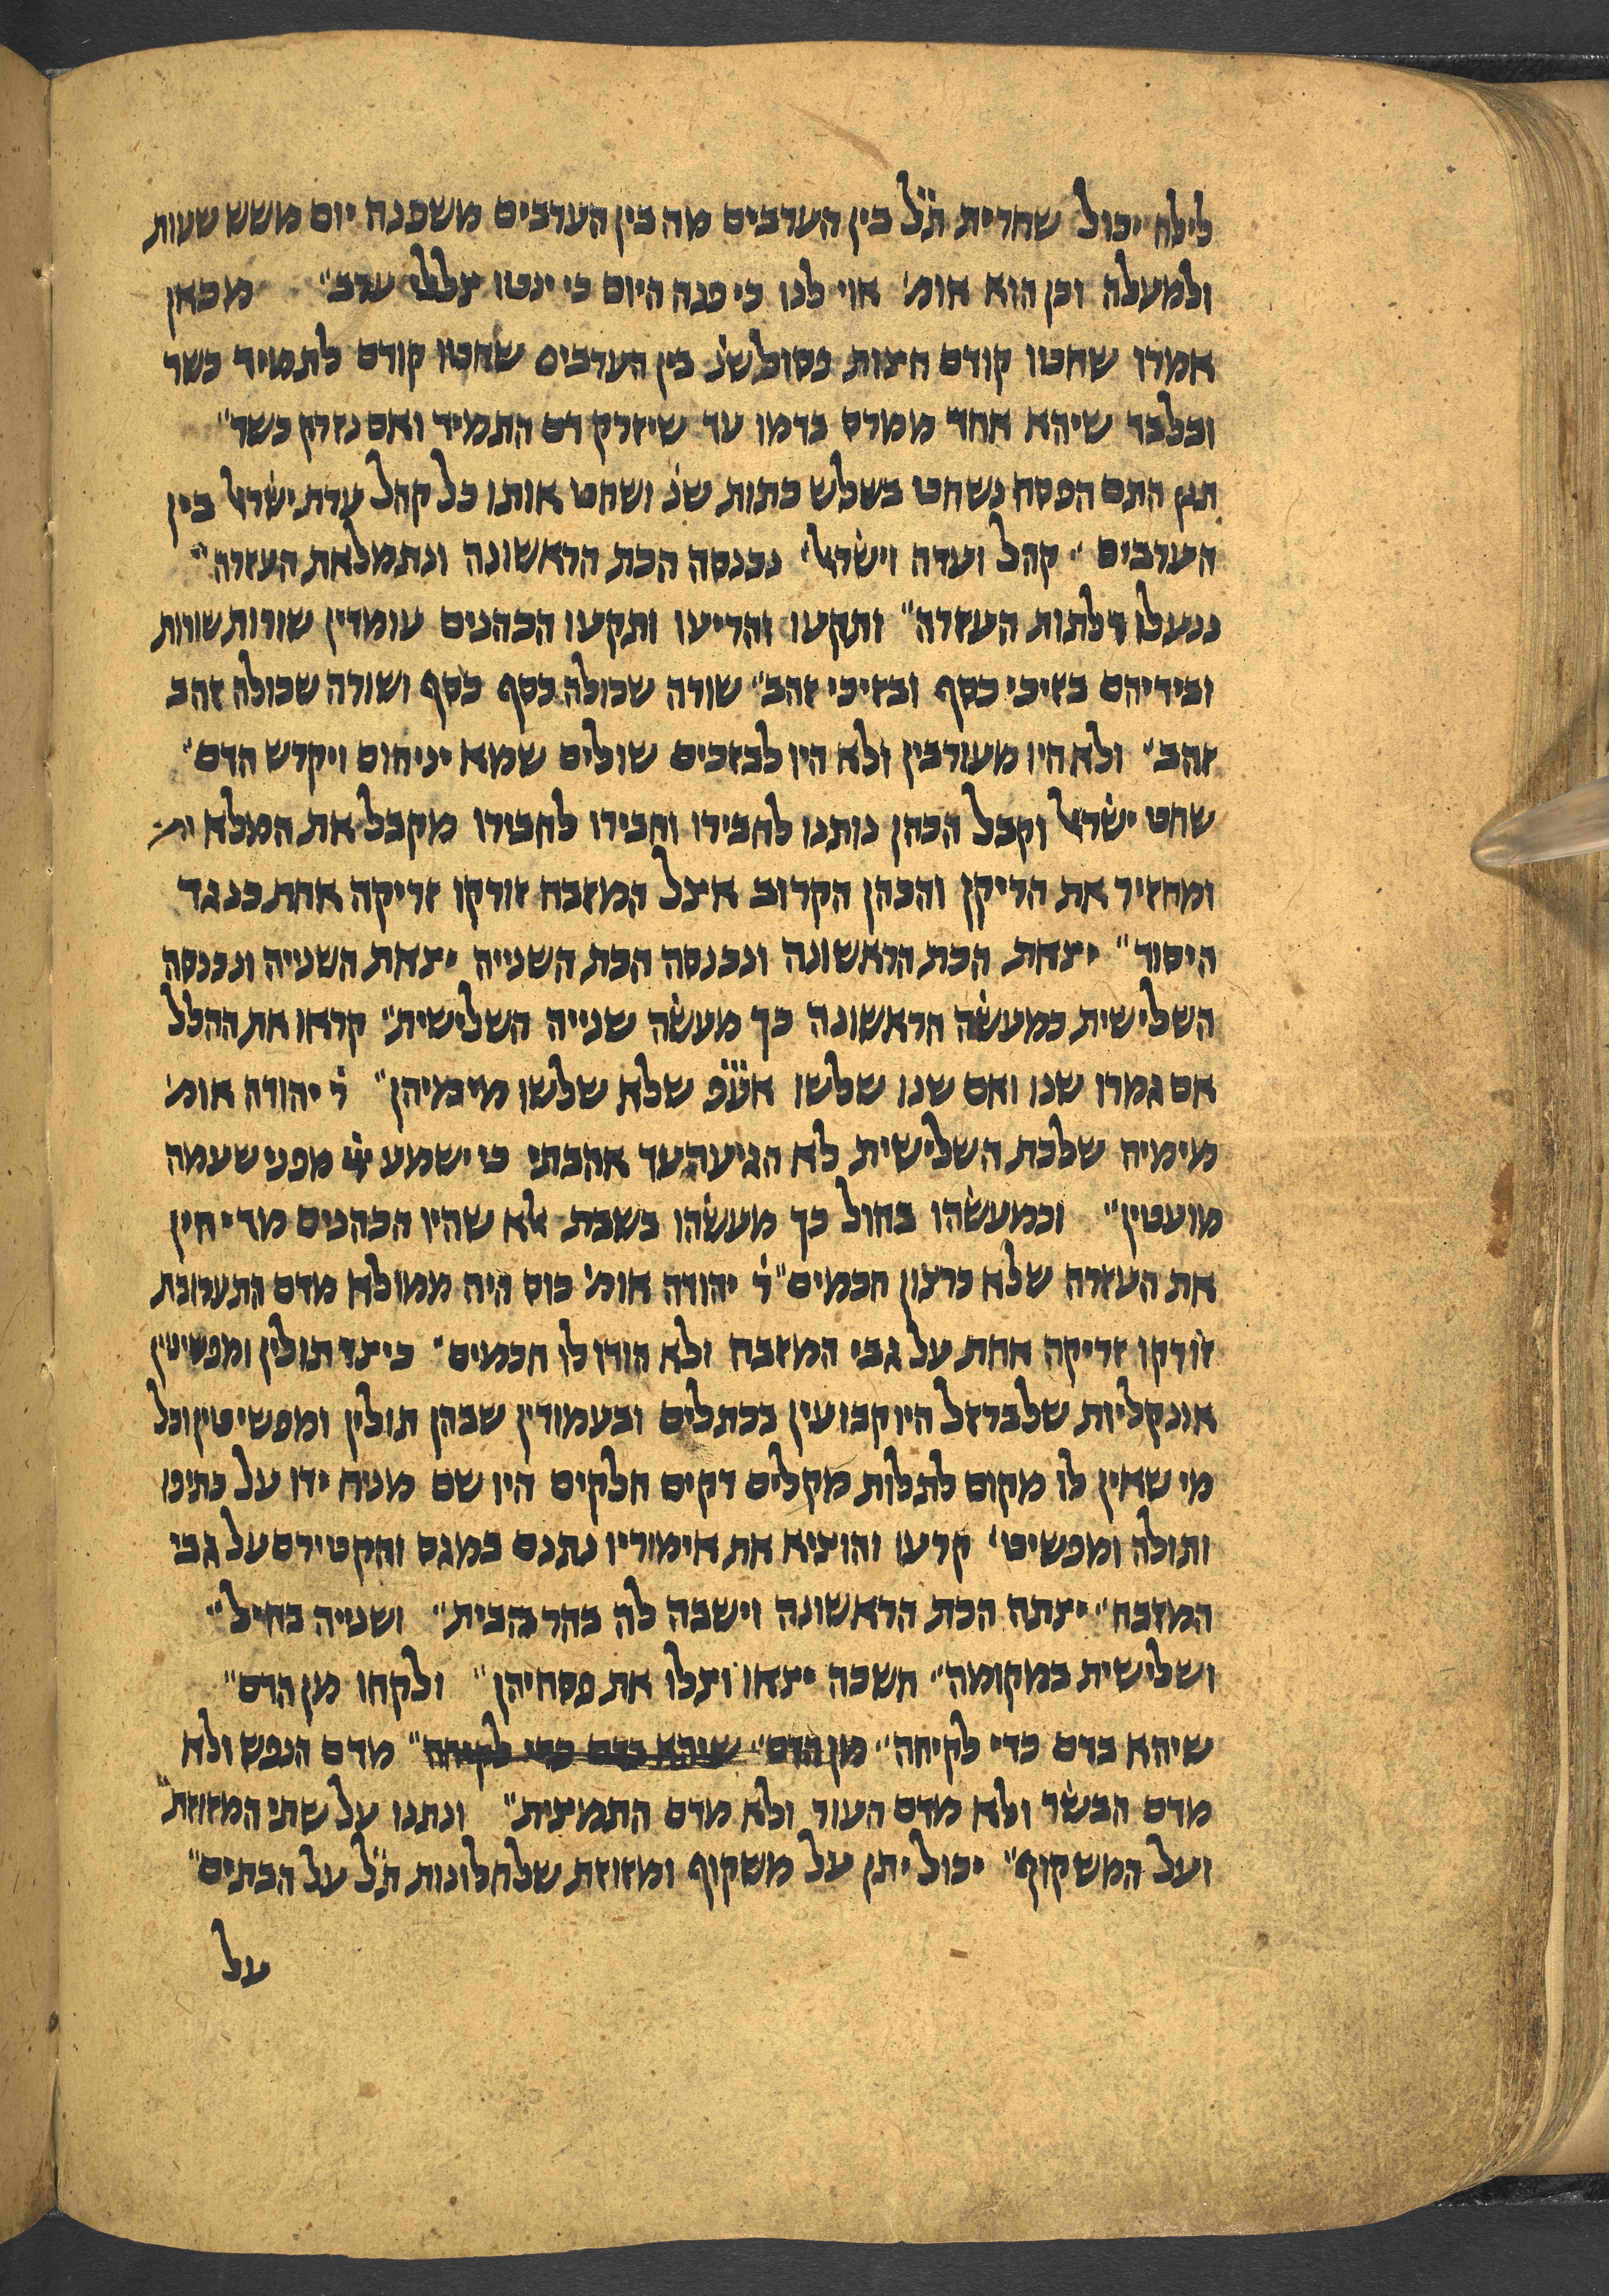 לילה יכול שחרית ת״ל בין הערבים מה בין הערבים משפנה יום משש שעות
ולמעלה וכן הוא אומ׳ אוי לנו כי פנה היום כי ינטו צללי ערב״ מכאן
אמרו שחטו קודם חצות פסול שנ׳ בין הערבים שחטו קודם לתמיד כשר
ובלבד שיהא אחד ממרס בדמו עד שיזרק דם התמיד ואם נזרק כשר״
תנן התם הפסח נשחט בשלש כתות שנ׳ ושחט אותו כל קהל עדת ישראל בין
הערבים״ קהל ועדה וישראל״ נכנסה הכת הראשונה ונתמלאת העזרה״
ננעלו דלתות העזרה״ ותקעו והריעו ותקעו הכהנים עומדין שורות שורות
ובידיהם בזיכי כסף ובזיכי זהב״ שורה שכולה כסף כסף ושורה שכולה זהב
זהב״ ולא היו מעורבין ולא היו לבזכים שולים שמא יניחום ויקרש הדם״
שחט ישראל וקבל הכהן נותנו לחבירו וחבירו לחבירו מקבל את המלא
ומחזיר את הריקן והכהן הקרוב אצל המזבח זורקו זריקה אחת כנגד
היסוד״ יצאת הכת הראשונה ונכנסה הכת השנייה יצאת השנייה ונכנסה
השלישית כמעשה הראשונה כך מעשה שנייה השלישית״ קראו את ההלל
אם גמרו שנו ואם שנו שלשו אע״פ שלא שלשו מימיהן״ ר׳ יהודה אומ׳
מימיה שלכת השלישית לא הגיעה עד אהבתי כי ישמע ייי מפני שעמה
מועטין״ וכמעשהו בחול כך מעשהו בשבת אלא שהיו הכהנים מדיחין
את העזרה שלא ברצון חכמים״ ר׳ יהודה אומ׳ כוס היה ממולא מדם התערובת
זורקו זריקה אחת על גבי המזבח ולא הודו לו חכמים״ כיצד תולין ומפשיטין
אונקליות שלברזל היו קבועין בכתלים ובעמודין שבהן תולין ומפשיטין וכל
מי שאין לו מקום לתלות מקלים דקים חלקים היו שם מניח ידו על כתיפו
ותולה ומפשיט׳ קרעו והוציא את אימוריו נתנם במגס והקטירם על גבי
המזבח״ יצתה הכת הראשונה וישבה לה בהר הבית״ ושנייה בחיל״
ושלישית במקומה״ חשכה יצאו וצלו את פסחיהן״ ולקחו מן הדם״
שיהא בדם כדי לקיחה״ מן הדם״ שיהא בדם כדי לקיחה״ מדם הנפש ולא
מדם הבשר ולא מדם העור ולא מדם התמצית״ ונתנו על שתי המזוזת״
ועל המשקוף״ יכול יתן על משקוף ומזוזת שלחלונות ת״ל על הבתים״
על